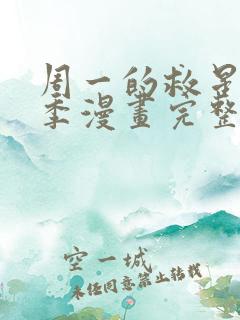 周一的救星
季漫畫完整
空一城
未经同意禁止转载